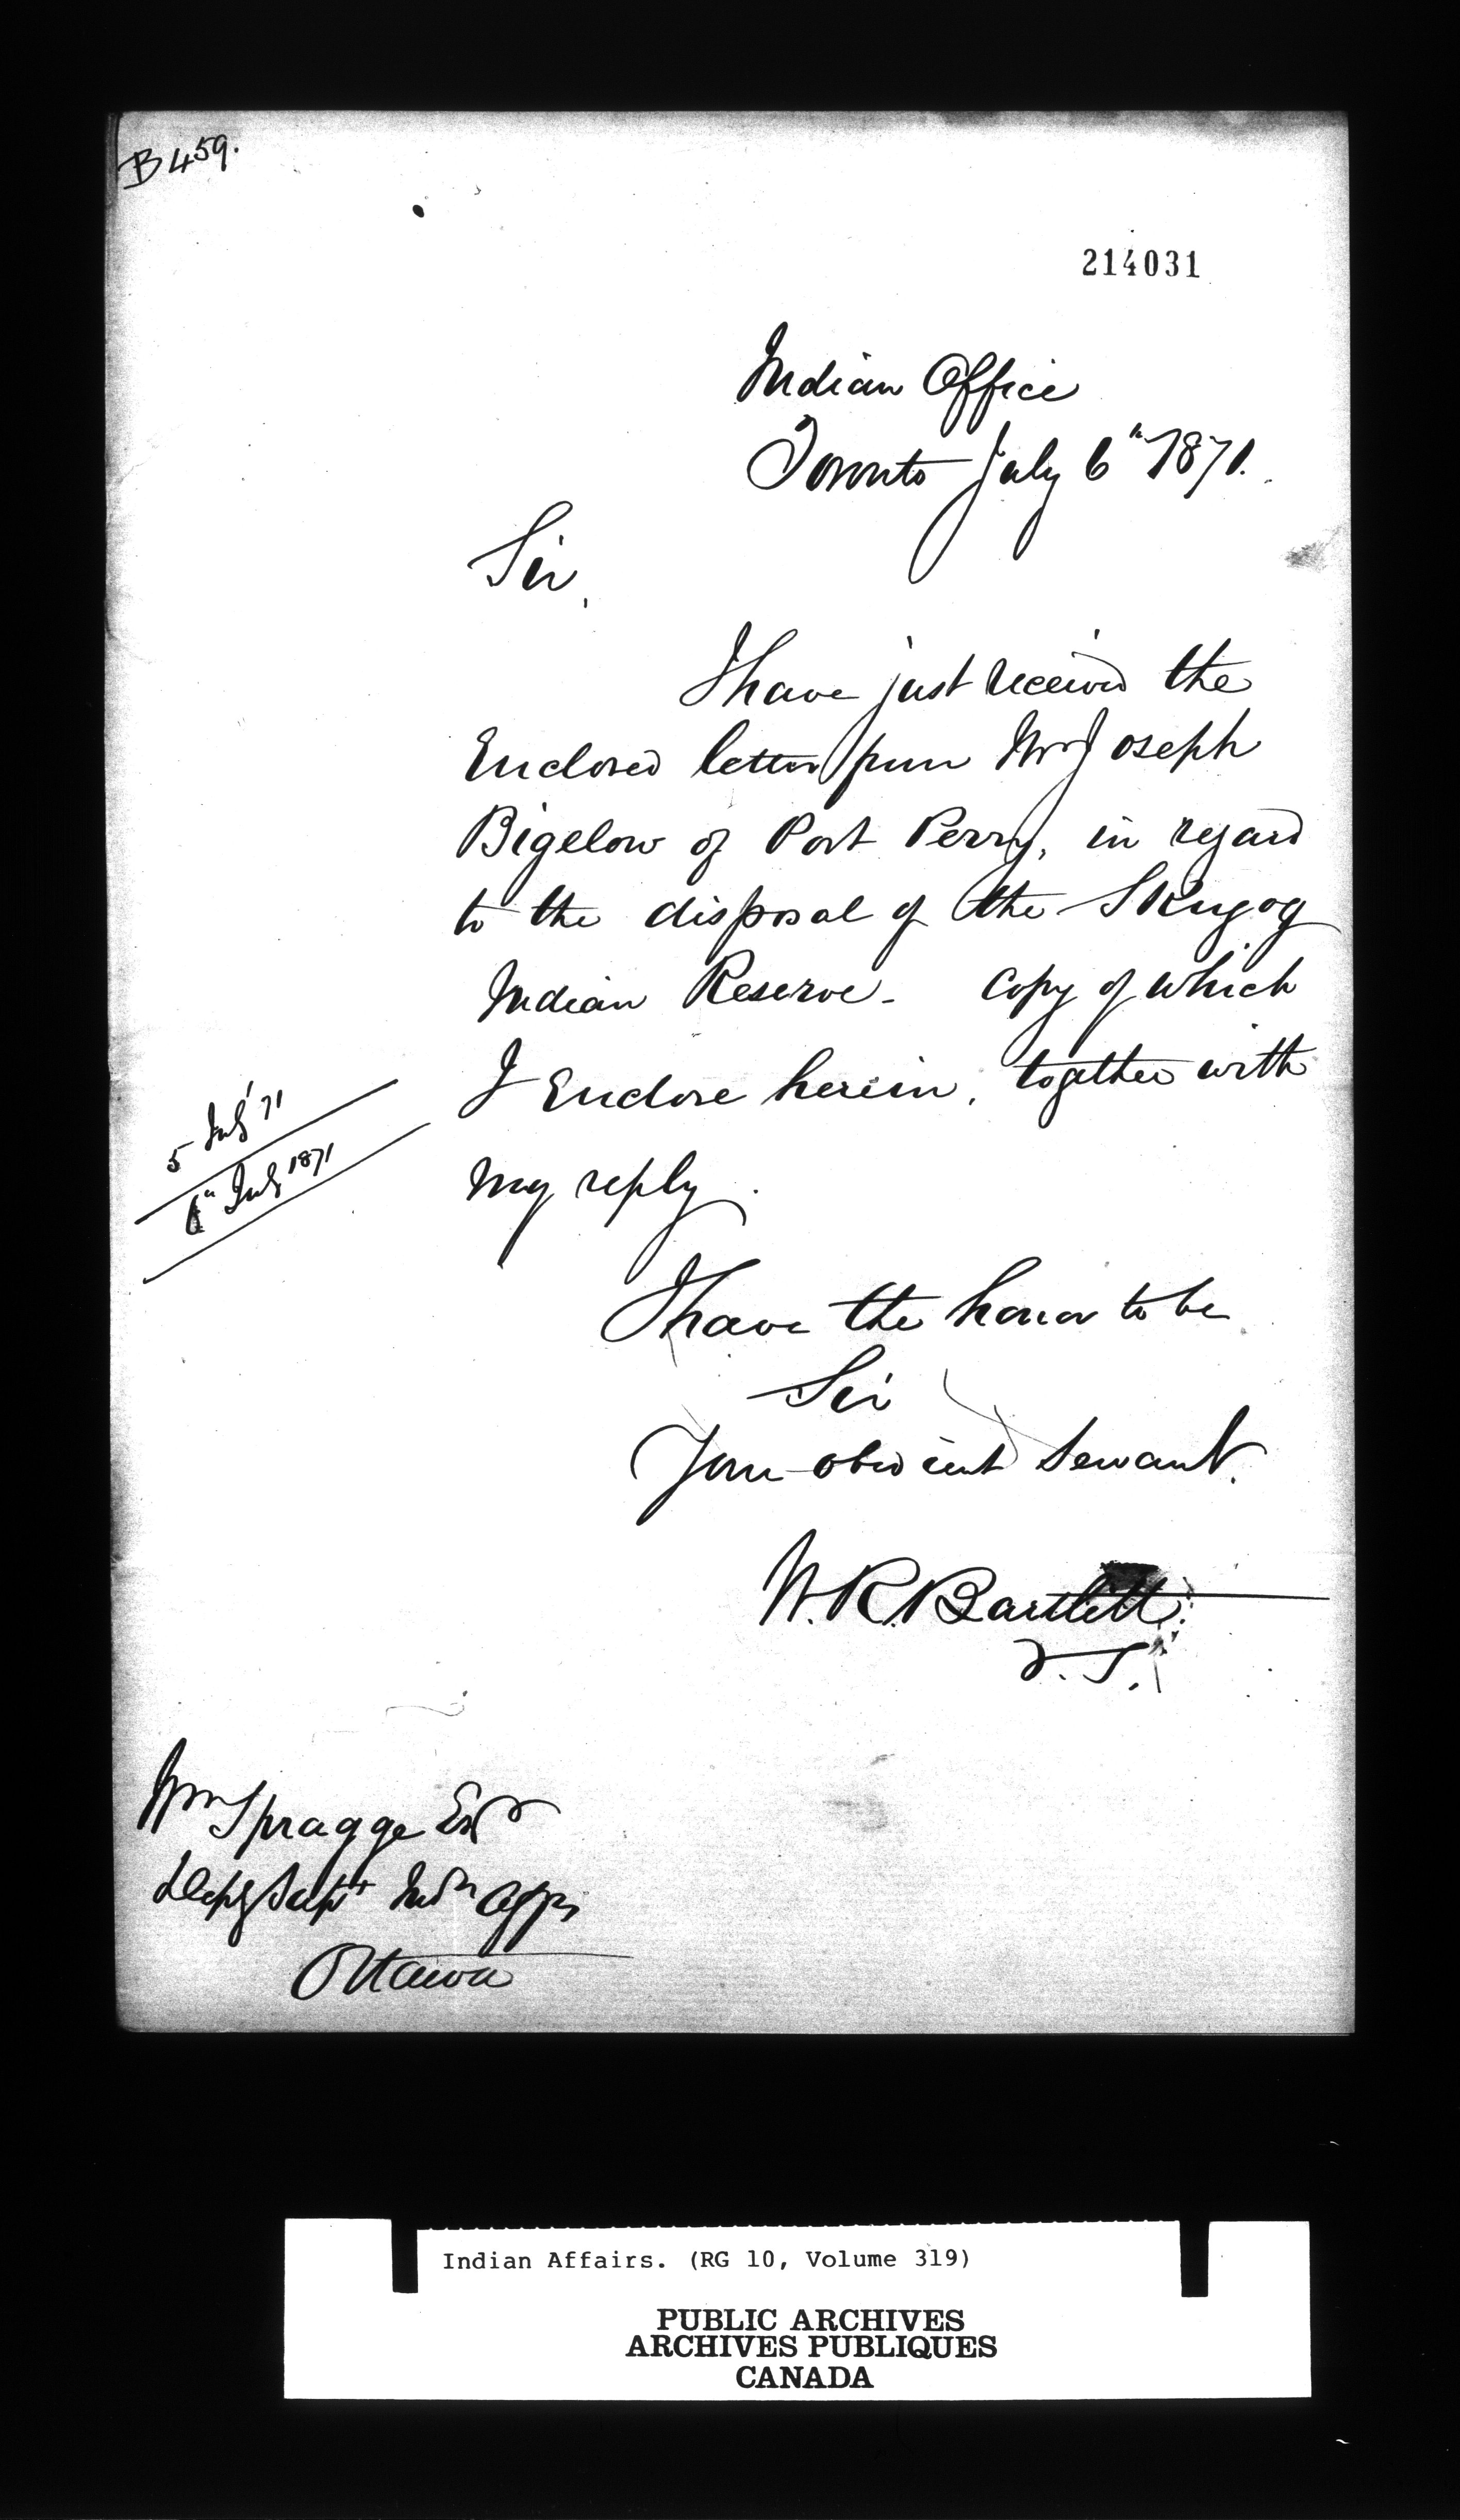 B459.
214031
Indian Office
Toronto July 6th 1871.
Sir,
I have just received the
Enclosed letter from Mr Joseph
Bigelow of Port Perry, in regard
to the disposal of the Skugog
Indian Reserve - Copy of which
I Enclose herein, together with
my reply.
5 July '71
6th July 1871
I have the honor to be
Sir
Your obedient Servant.
W.R. Bartlett
V.S.
Wm Spragge Esqr
Depy Supt Indn Affrs
Ottawa
Indian Affairs. (RG 10, Volume 319)
PUBLIC ARCHIVES
ARCHIVES PUBLIQUES
CANADA